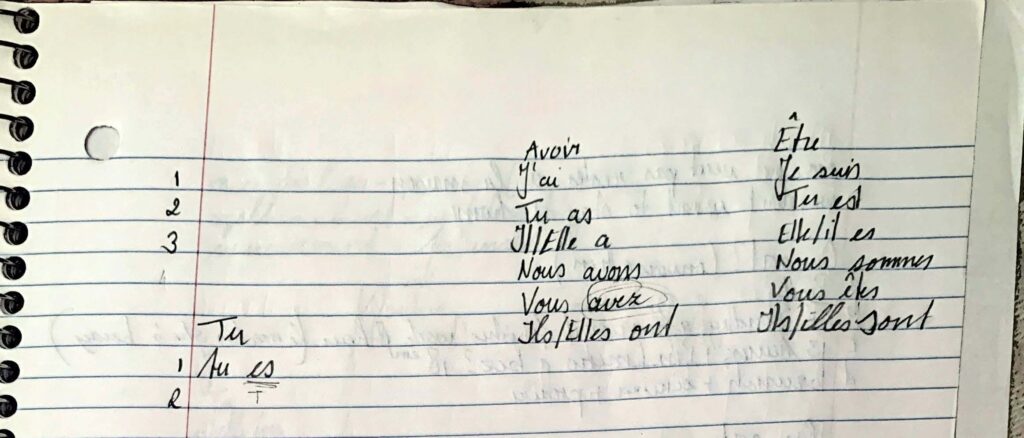 Avoir Être
1 J'ai Je suis
2 Tu as Tu est
3 Il/Elle a Elle/il es
Nous avons Nous sommes
Vous avez Vous êtes
Ils/Elles ont Ils/elles sont
Tu
1 tu es
T
2